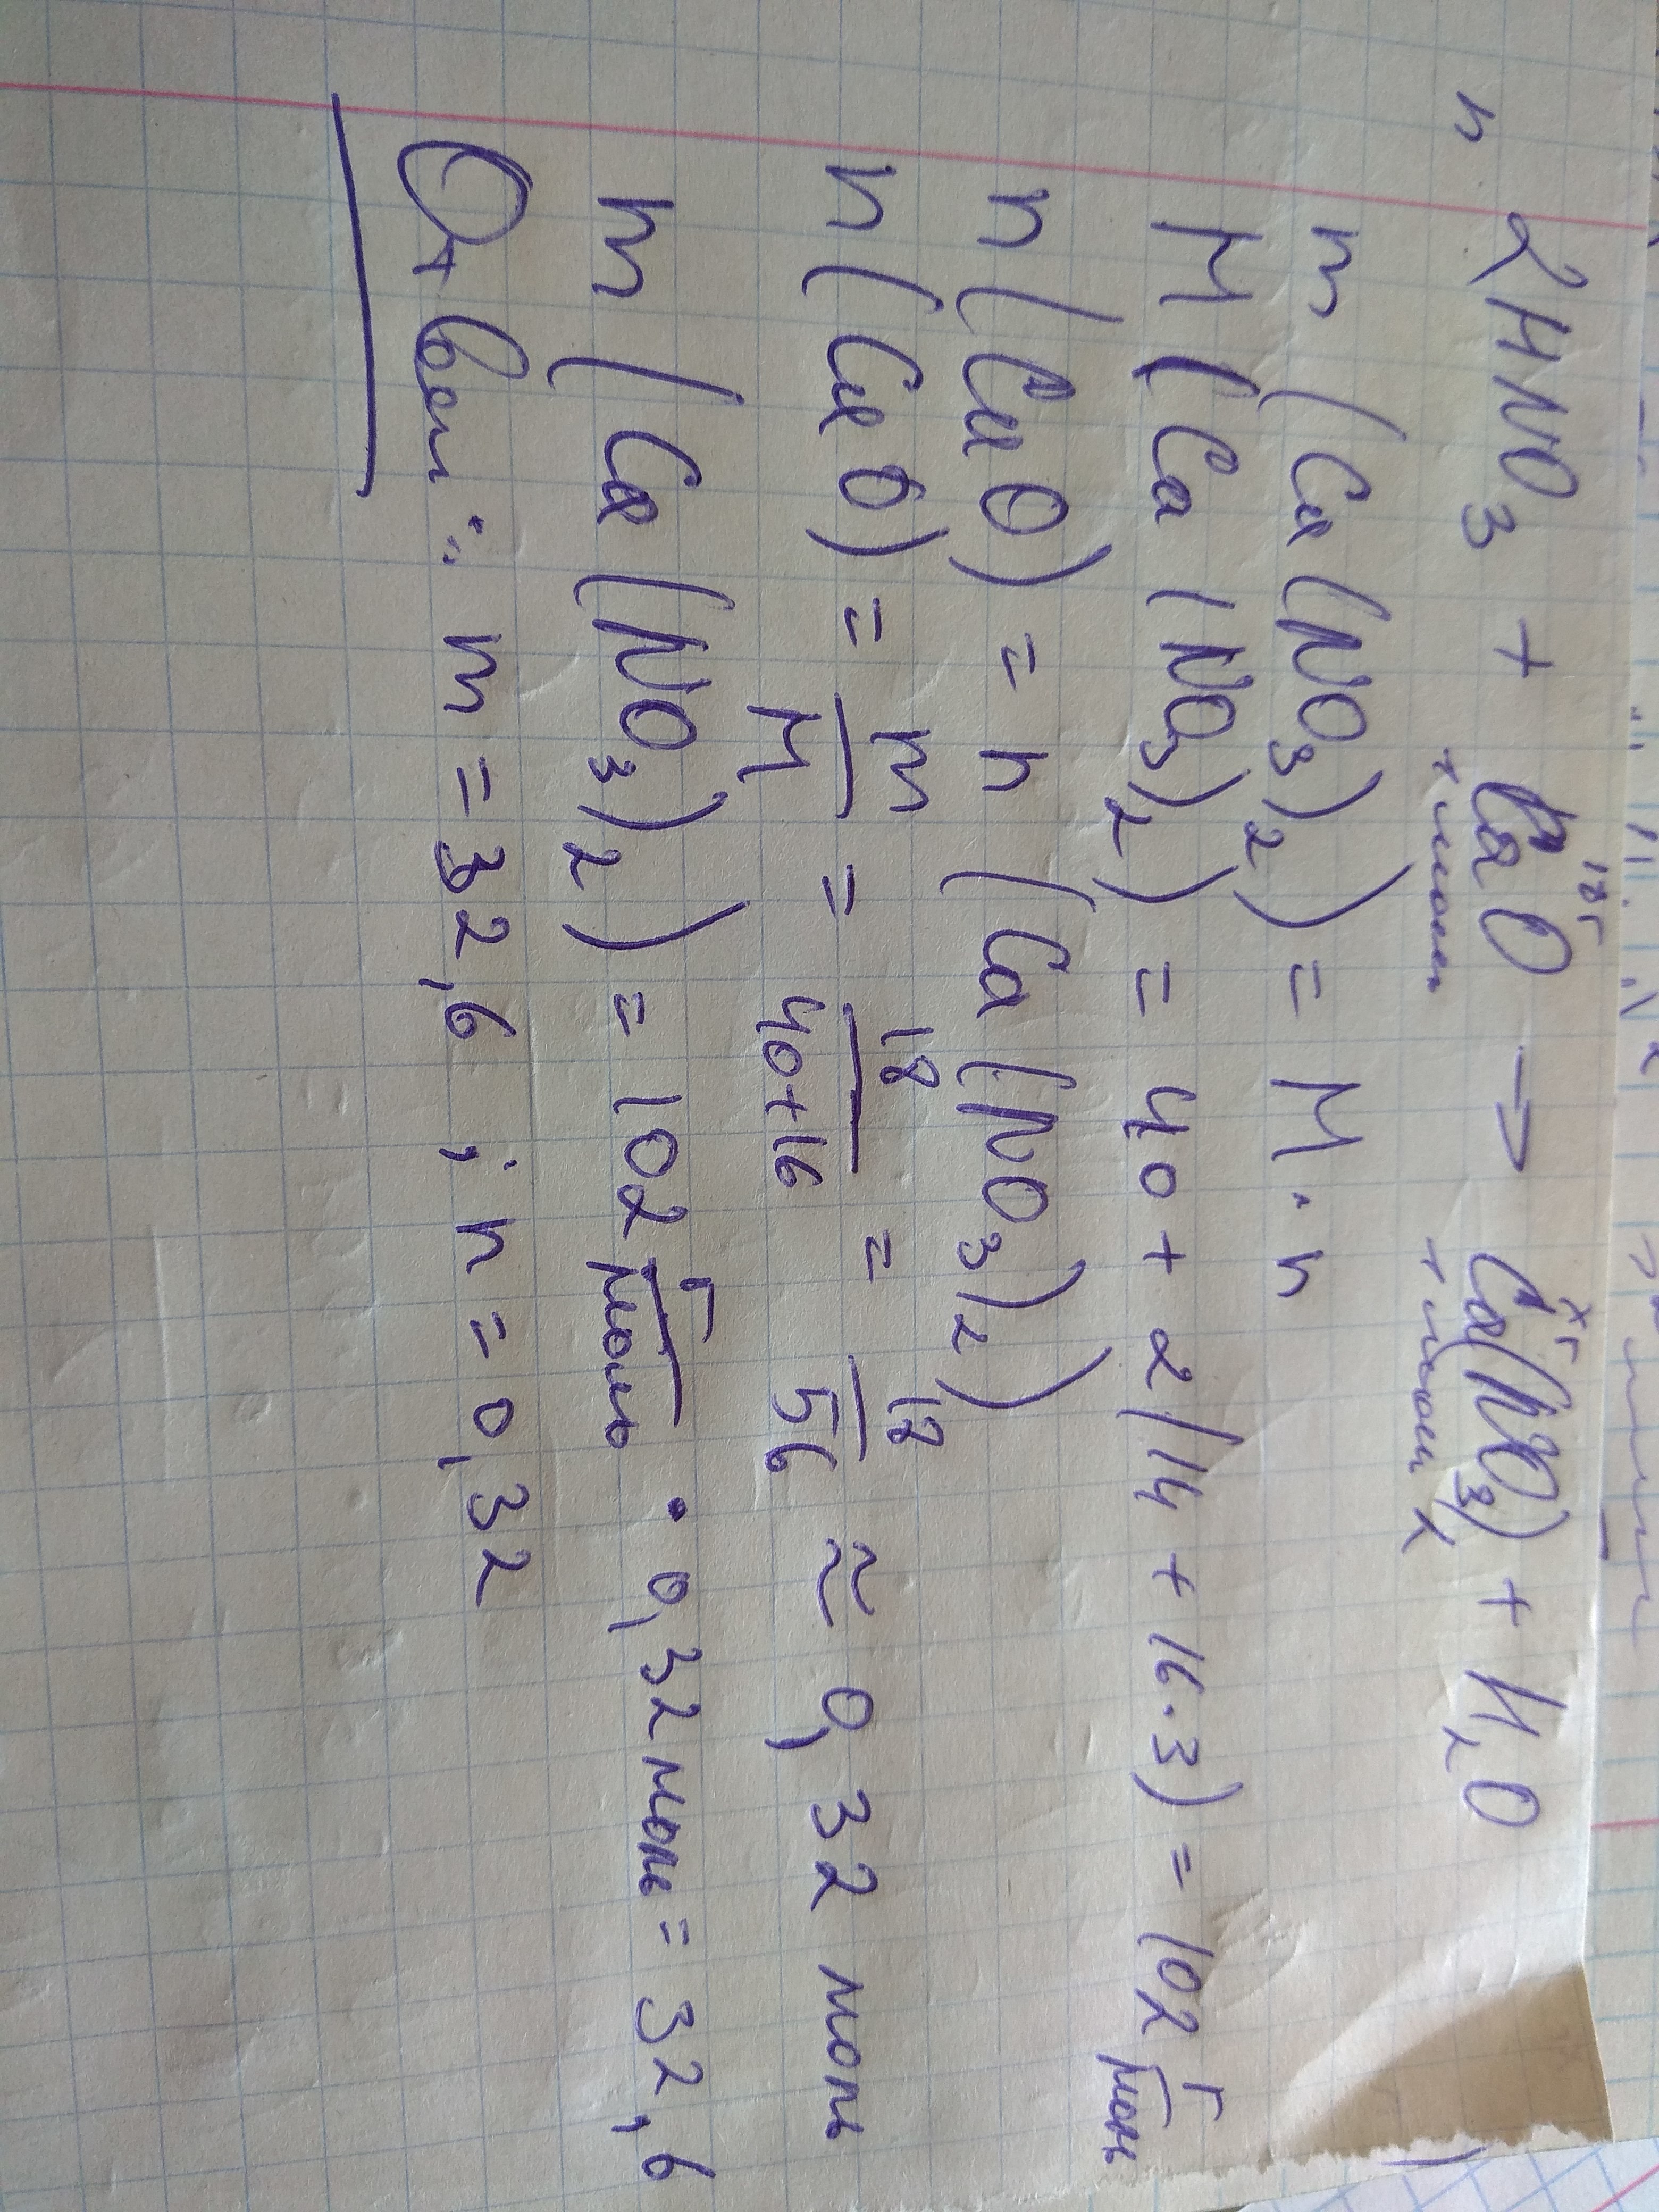 18г хг
2HNO₃ + CaO → Ca(NO₃)₂ + H₂O
m(Ca(NO₃)₂) = M · n
M(Ca(NO₃)₂) = 40 + 2(14 + 16·3) = 102 г/моль
n(CaO) = n(Ca(NO₃)₂)
n(CaO) = m/M = 18/40+16 = 18/56 ≈ 0,32 моль
m(Ca(NO₃)₂) = 102 г/моль · 0,32 моль = 32,6
Ответ: m = 32,6 ; n = 0,32